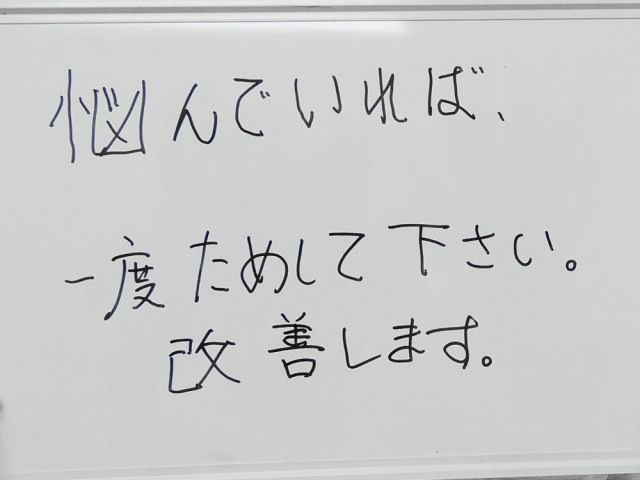 悩んでいれば、
一度ためして下さい。
改善します。